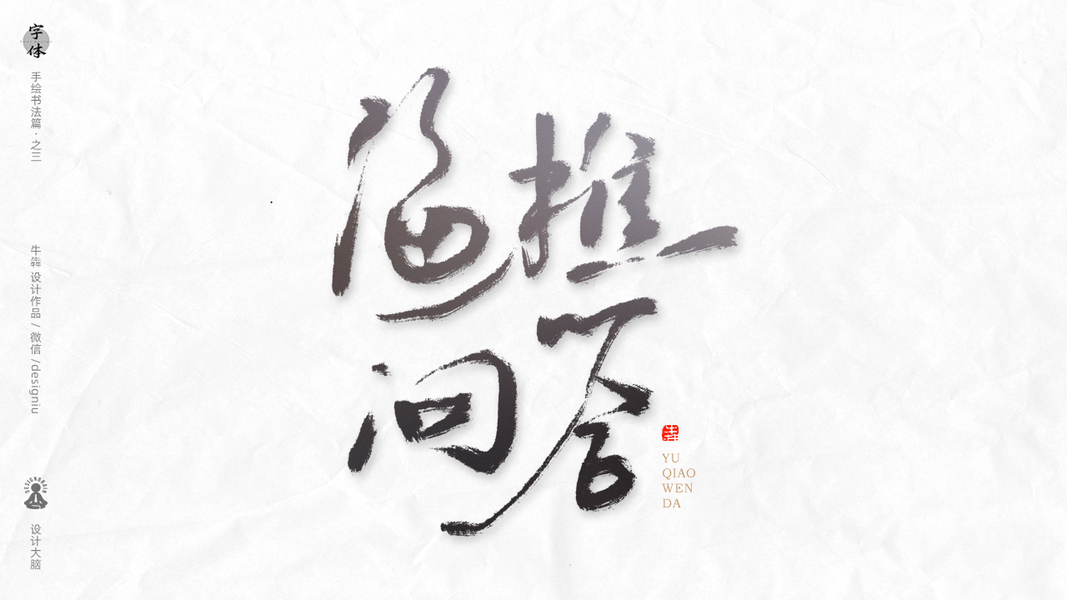 字体
手绘书法篇·之三
牛犇 设计作品 / 微信 /designiu
设计大脑
渔樵
问答
YU
QIAO
WEN
DA